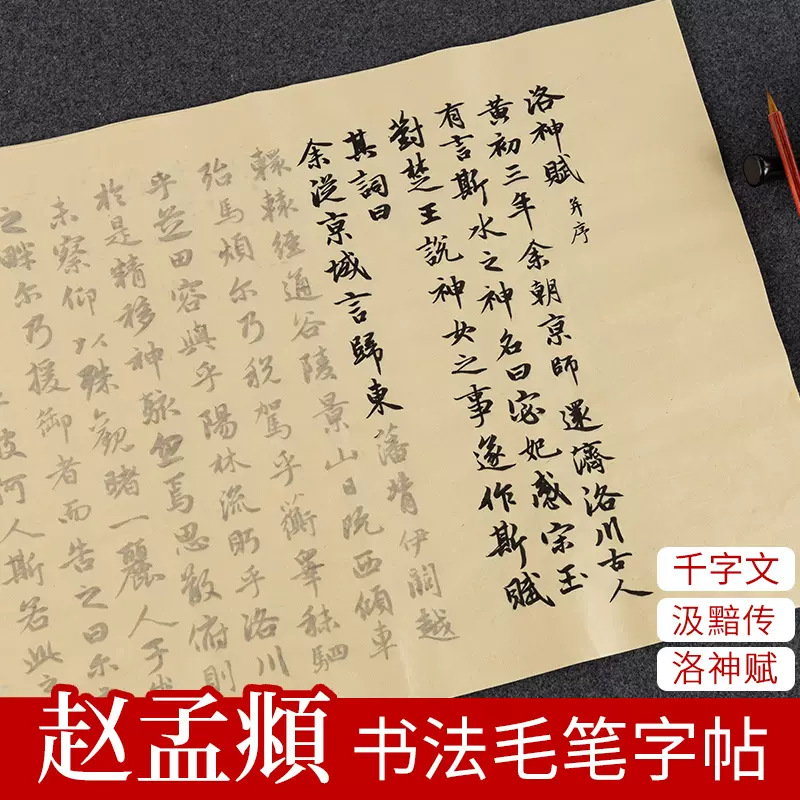 洛神賦 并序
黄初三年余朝京師還濟洛川古人
有言斯水之神名曰宓妃感宋玉
對楚王說神女之事遂作斯賦
其詞曰
余從京域言歸東藩背伊闕越
轘轅經通谷陵景山日既西傾車
殆馬煩尔乃稅駕乎蘅皋秣駟
乎芝田容與乎陽林流眄乎洛川
於是精移神駭忽焉思散俯則
未察仰以殊觀睹一麗人于
之畔尔乃援御者而告之曰尔
彼何人斯若此
千字文
汲黯传
洛神赋
赵孟頫 书法毛笔字帖